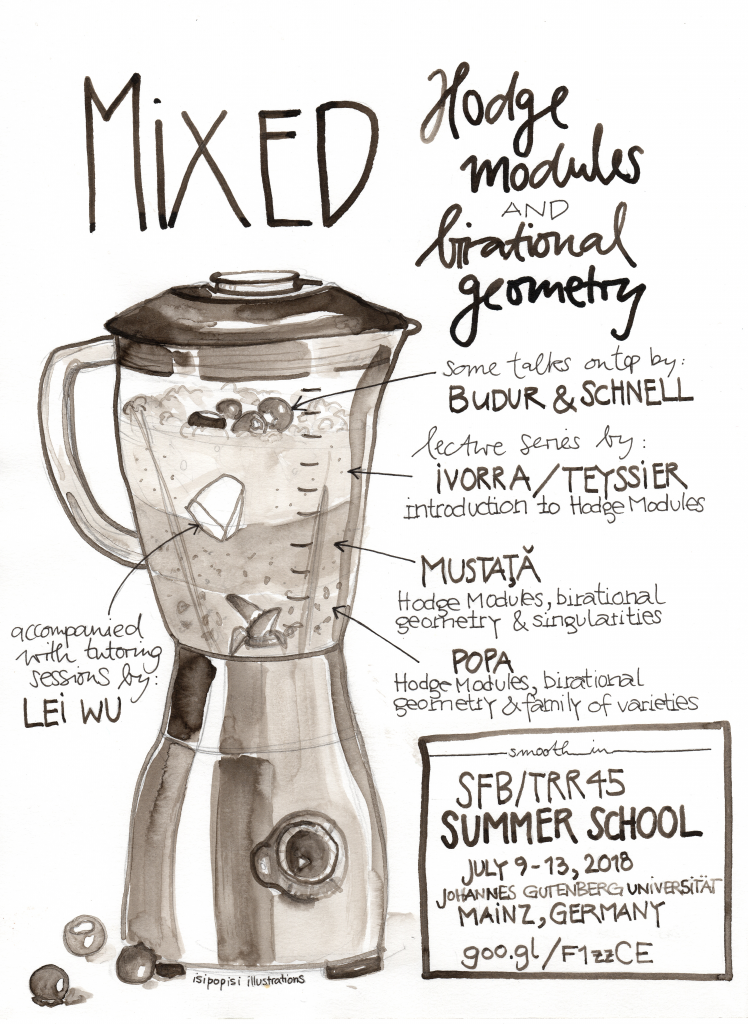 MiXED
Hodge
modules
AND
birational
geometry
some talks on top by:
BUDUR & SCHNELL
lecture series by:
iVORRA/TEYSSiER
introduction to Hodge Modules
MUSTAŢĂ
Hodge Modules, birational
geometry & singularities
POPA
Hodge Modules, birational
geometry & family of varieties
accompanied
with tutoring
sessions by:
LEi WU
smooth in
SFB/TRR45
SUMMER SCHOOL
JULY 9-13, 2018
JOHANNES GUTENBERG UNiVERSiTÄT
MAiNZ, GERMANY
goo.gl/F1zzCE
isipopisi illustrations